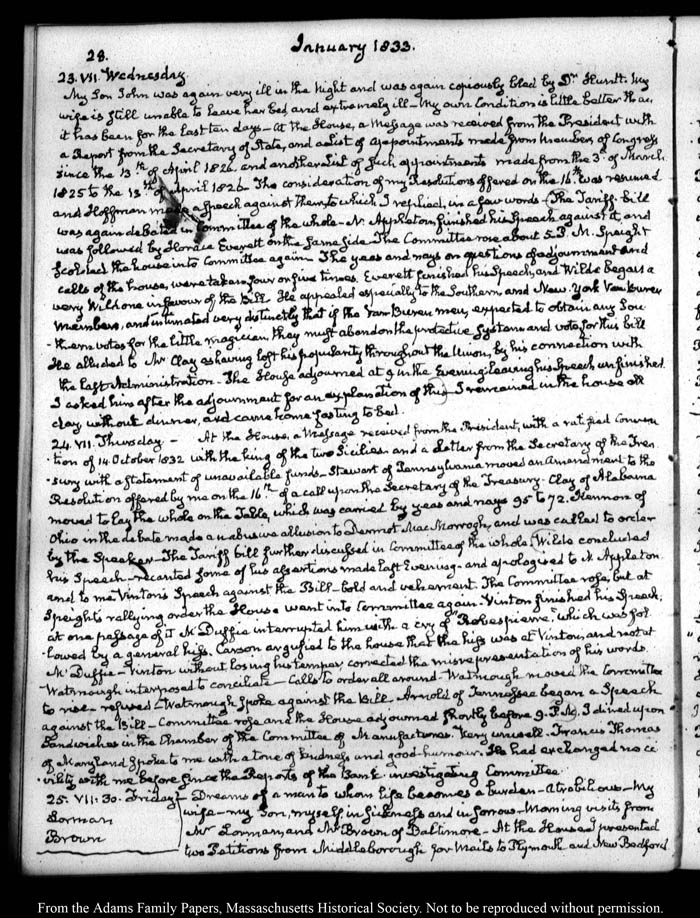 28.
January 1833.
23. VII. Wednesday.
My Son John was again very ill in the Night and was again copiously bled by Dr. Huntt. My
wife is still unable to leave her bed, and extremely ill — My own Condition is little better than
it has been for the last ten days — At the House, a Message was received from the President with
a Report from the Secretary of State, and a List of Appointments made from Members of Congress
since the 13th of April 1826. and another List of such appointments made from the 3d of March
1825 to the 13th of April 1826 — The consideration of my Resolutions offered on the 16th was resumed
and Hoffman made a Speech against them, to which I replied, in a few words — The Tariff-bill
was again debated in Committee of the whole — N. Appleton finished his Speech against it, and
was followed by Horace Everett on the same side — The Committee rose about 5 P. M. Speight
scolded the house into Committee again. The yeas and nays on questions of adjournment and
calls of the house, were taken four or five times. Everett finished his Speech, and Wilde began a
very Wild one in favour of the Bill. He appealed especially to the Southern and New-York Van Buren
Members, and intimated very distinctly that if the Van Buren men, expected to obtain any Sou-
-thern votes for the little magician, they must abandon the protective System and vote for this bill
He alluded to Mr Clay as having lost his popularity throughout the Union, by his connection with
the last Administration — The House adjourned at 9 in the Evening leaving his Speech unfinished.
I asked him after the adjournment for an explanation of this — I remained in the house all
day without dinner, and came home fasting to bed.
24. VII. Thursday. — At the House, a Message received from the President, with a ratified Conven-
-tion of 14 October 1832 with the king of the two Sicilies and a Letter from the Secretary of the Trea-
-sury with a statement of unavailable funds — Stewart of Pennsylvania moved an Amendment to the
Resolution offered by me on the 16th of a call upon the Secretary of the Treasury — Clay of Alabama
moved to lay the whole on the Table, which was carried by yeas and nays 95 to 72. Kennon of
Ohio in the debate made an abusive allusion to Dermot MacMorrogh, and was called to order
by the Speaker — The Tariff bill further discussed in Committee of the whole, Wilde concluded
his Speech — recanted some of his assertions made last Evening — and apologised to N. Appleton
and to me Vinton's Speech against the Bill — bold and vehement. The Committee rose, but at
Speight's rallying order the House went into Committee again. Vinton finished his Speech;
at one passage of it McDuffie interrupted him with a cry of "Robespierre," which was fol-
-lowed by a general hiss. Carson argufied to the house that the hiss was at Vinton, and not at
McDuffie — Vinton without losing his temper, corrected the misrepresentation of his words.
Watmough interposed to conciliate — Calls to order all around — Watmough moved the Committee
to rise — refused — Watmough spoke against the Bill — Arnold of Tennessee began a Speech
against the Bill — Committee rose and the House adjourned shortly before 9. P.M. I dined upon
Sandwiches in the Chamber of the Committee of Manufactures. Very unwell. Francis Thomas
of Maryland spoke to me with a tone of kindness and good-humour. He had exchanged no ci-
-vility with me before since the Reports of the Bank investigating Committee
25. VII. 30. Friday — Dreams of a man to whom life becomes a burden — atrabilious — My
Lorman
wife — my Son, myself in sickness and in sorrow — Morning visits from
Brown
Mr Lorman, and Mr Brown of Baltimore — At the House I presented
two Petitions from Middleborough for Mails to Plymouth and New Bedford
From the Adams Family Papers, Massachusetts Historical Society. Not to be reproduced without permission.